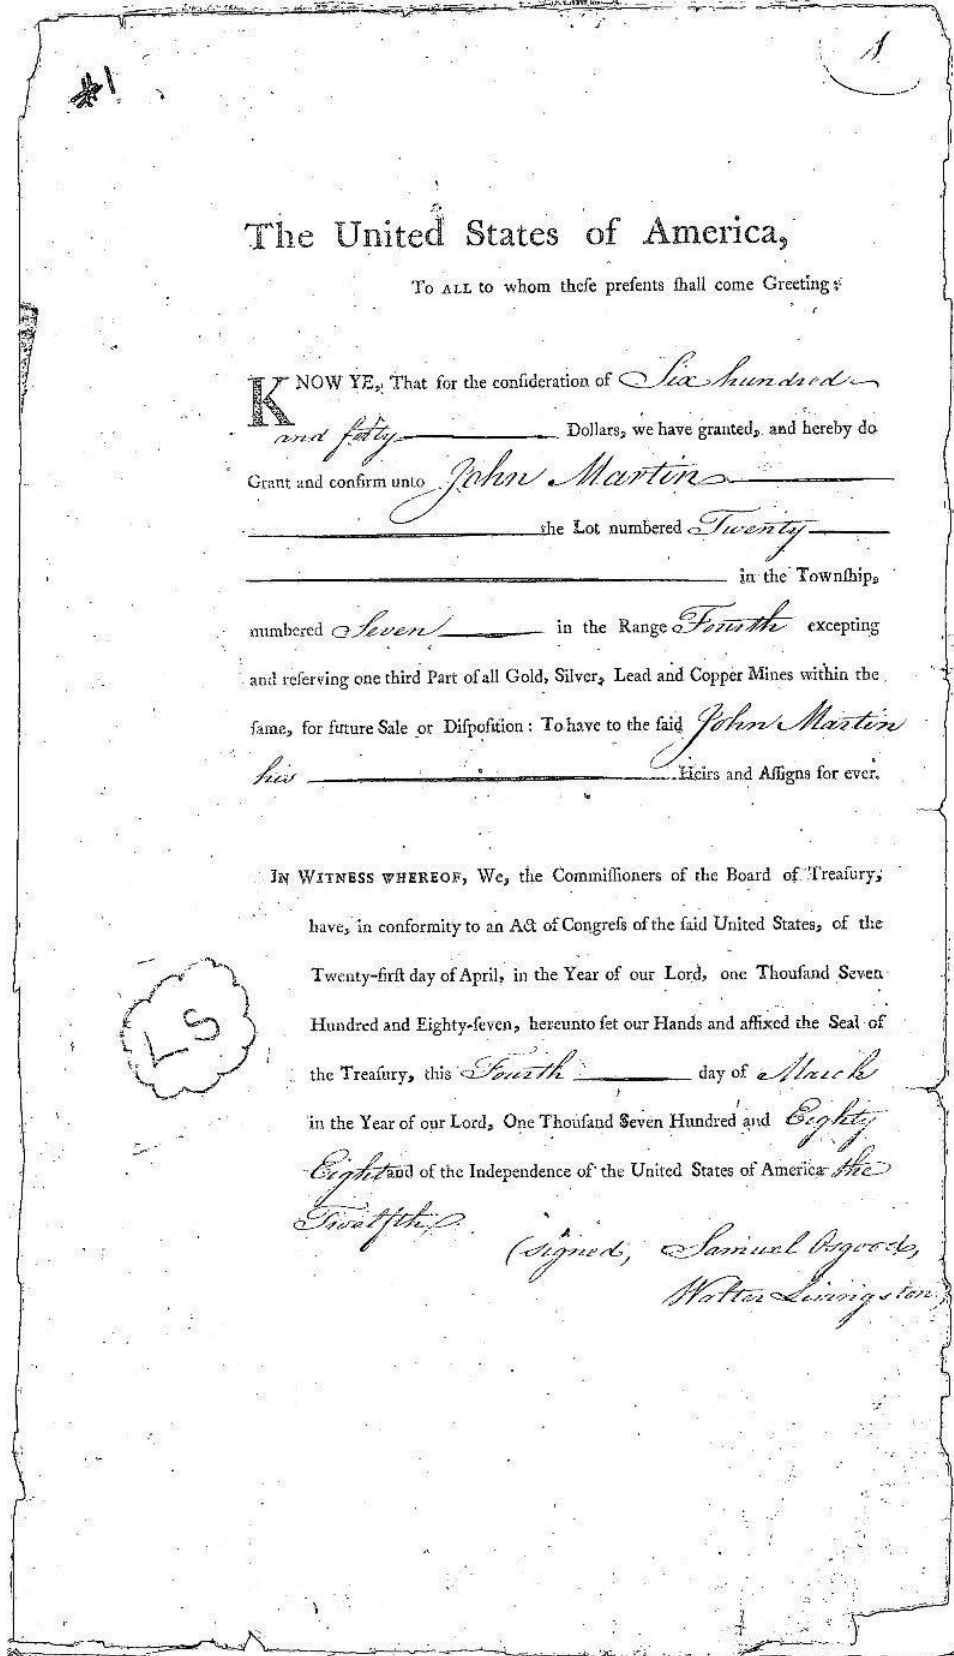 #1
1
The United States of America,
To ALL to whom theſe preſents ſhall come Greeting:
KNOW YE, That for the conſideration of Six hundred
and forty Dollars, we have granted, and hereby do
Grant and confirm unto John Martin
the Lot numbered Twenty
in the Townſhip,
numbered Seven in the Range Fourth excepting
and reſerving one third Part of all Gold, Silver, Lead and Copper Mines within the
ſame, for future Sale or Diſpoſition: To have to the ſaid John Martin
his Heirs and Aſſigns for ever.
IN WITNESS WHEREOF, We, the Commiſſioners of the Board of Treaſury,
have, in conformity to an Act of Congreſs of the ſaid United States, of the
Twenty-firſt day of April, in the Year of our Lord, one Thouſand Seven
Hundred and Eighty-ſeven, hereunto ſet our Hands and affixed the Seal of
LS
the Treaſury, this Fourth day of March
in the Year of our Lord, One Thouſand Seven Hundred and Eighty
Eight and of the Independence of the United States of America the
Twelfth.
(signed, Samuel Osgood,
Walter Livingston,